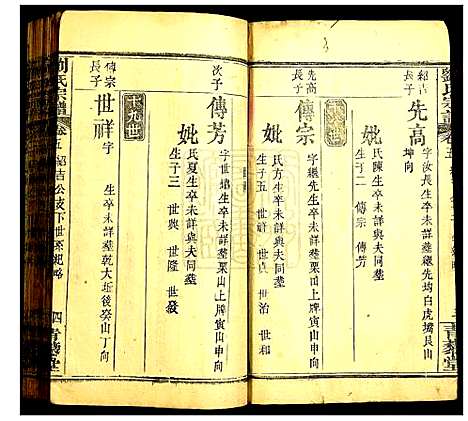 紹吉
長子
先高
字汝長生卒未詳葬繼先均白虎塘艮山
坤向
妣
氏陳生卒未詳與夫同葬
生子二 傳宗 傳芳
十八世
先高
長子
傳宗
字繼先生卒未詳葬栗山上牌寅山申向
妣
氏方生卒未詳與夫同葬
生子五 世祥 世貞 世治 世和
次子
傳芳
字世焰生卒未詳葬栗山上牌寅山申向
妣
氏夏生卒未詳與夫同葬
生子三 世興 世隆 世發
十九世
傳宗
長子
世祥
字 生卒未詳葬乾大坵後癸山丁向
劉氏宗譜
卷五 紹吉公支下世系紀略
四 青藜堂